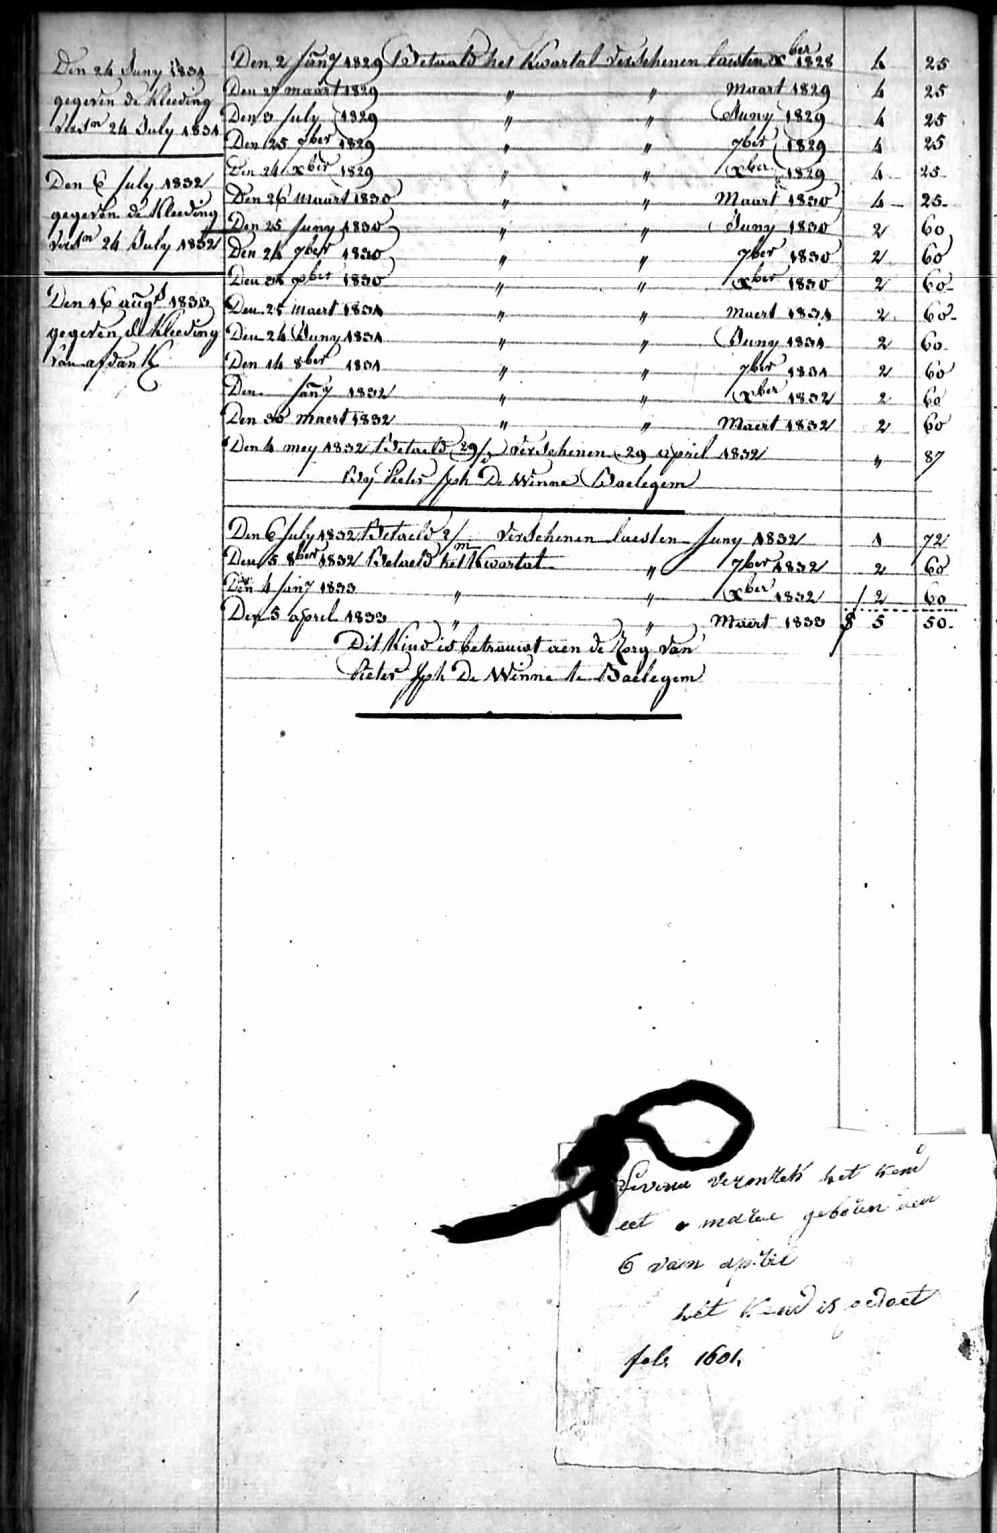 Den 24 Juny 1831
gegeven de Kleeding
versn 24 July 1831
Den 6 July 1832
gegeven de Kleeding
versn 24 July 1832
Den 16 augt 1833
gegeven de Kleeding
van afdank
Den 2 Jany 1829 Betaald het Kwartal verschenen laesten xber 1828 4 25
Den 27 maart 1829 " " Maart 1829 4 25
Den 3 july 1829 " " Juny 1829 4 25
Den 25 9ber 1829 " " 7ber 1829 4 25
Den 24 xber 1829 " " xber 1829 4 25
Den 26 maart 1830 " " Maart 1830 4 25
Den 25 Juny 1830 " " Juny 1830 2 60
Den 24 7ber 1830 " " 7ber 1830 2 60
Den xber 1830 " " xber 1830 2 60
Den 25 maert 1831 " " Maert 1831 2 60
Den 24 Juny 1831 " " Juny 1831 2 60
Den 14 8ber 1831 " " 7ber 1831 2 60
Den Jany 1832 " " xber 1832 2 60
Den 30 maert 1832 " " Maert 1832 2 60
Den 4 mey 1832 Betaeld 29/ verschenen 29 april 1832 " 87
by Pieter Jph De Winne Baelegem
Den 6 July 1832 Betaeld 2/m verschenen laesten Juny 1832 1 72
Den 5 8ber 1832 Betaeld het Kwartal " 7ber 1832 2 60
Den 4 Jany 1833 " " xber 1832 2 60
Den 5 april 1833 " " Maert 1833 5 50
Dit Kind is betrouwt aen de Zorg van
Pieter Jph De Winne te Baelegem
het kend
eet geboren den
6 van april
het Kend is gedoet
folo 1601